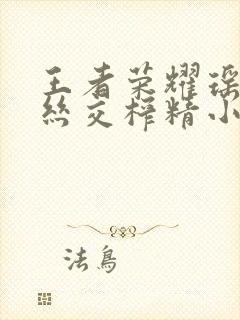 王者荣耀瑶
丝交榨精小
法鳥